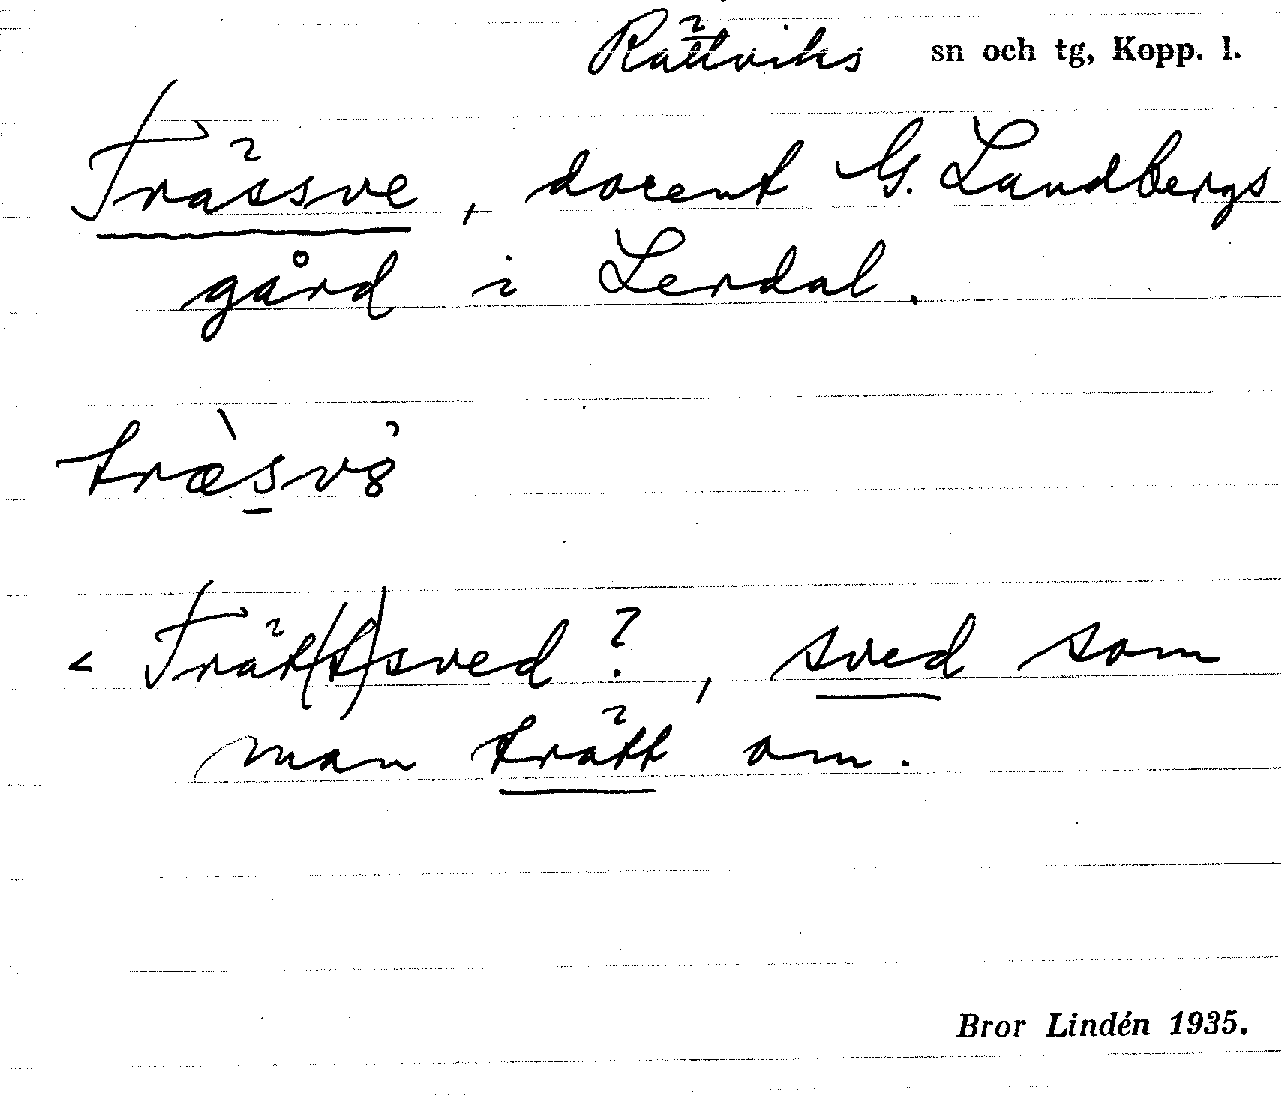 Rättviks sn och tg, Kopp. l.
Trässve, docent G. Landbergs
gård i Lerdal.
< Trät(t)sved?, sved som
man trätt om.
Bror Lindén 1935.